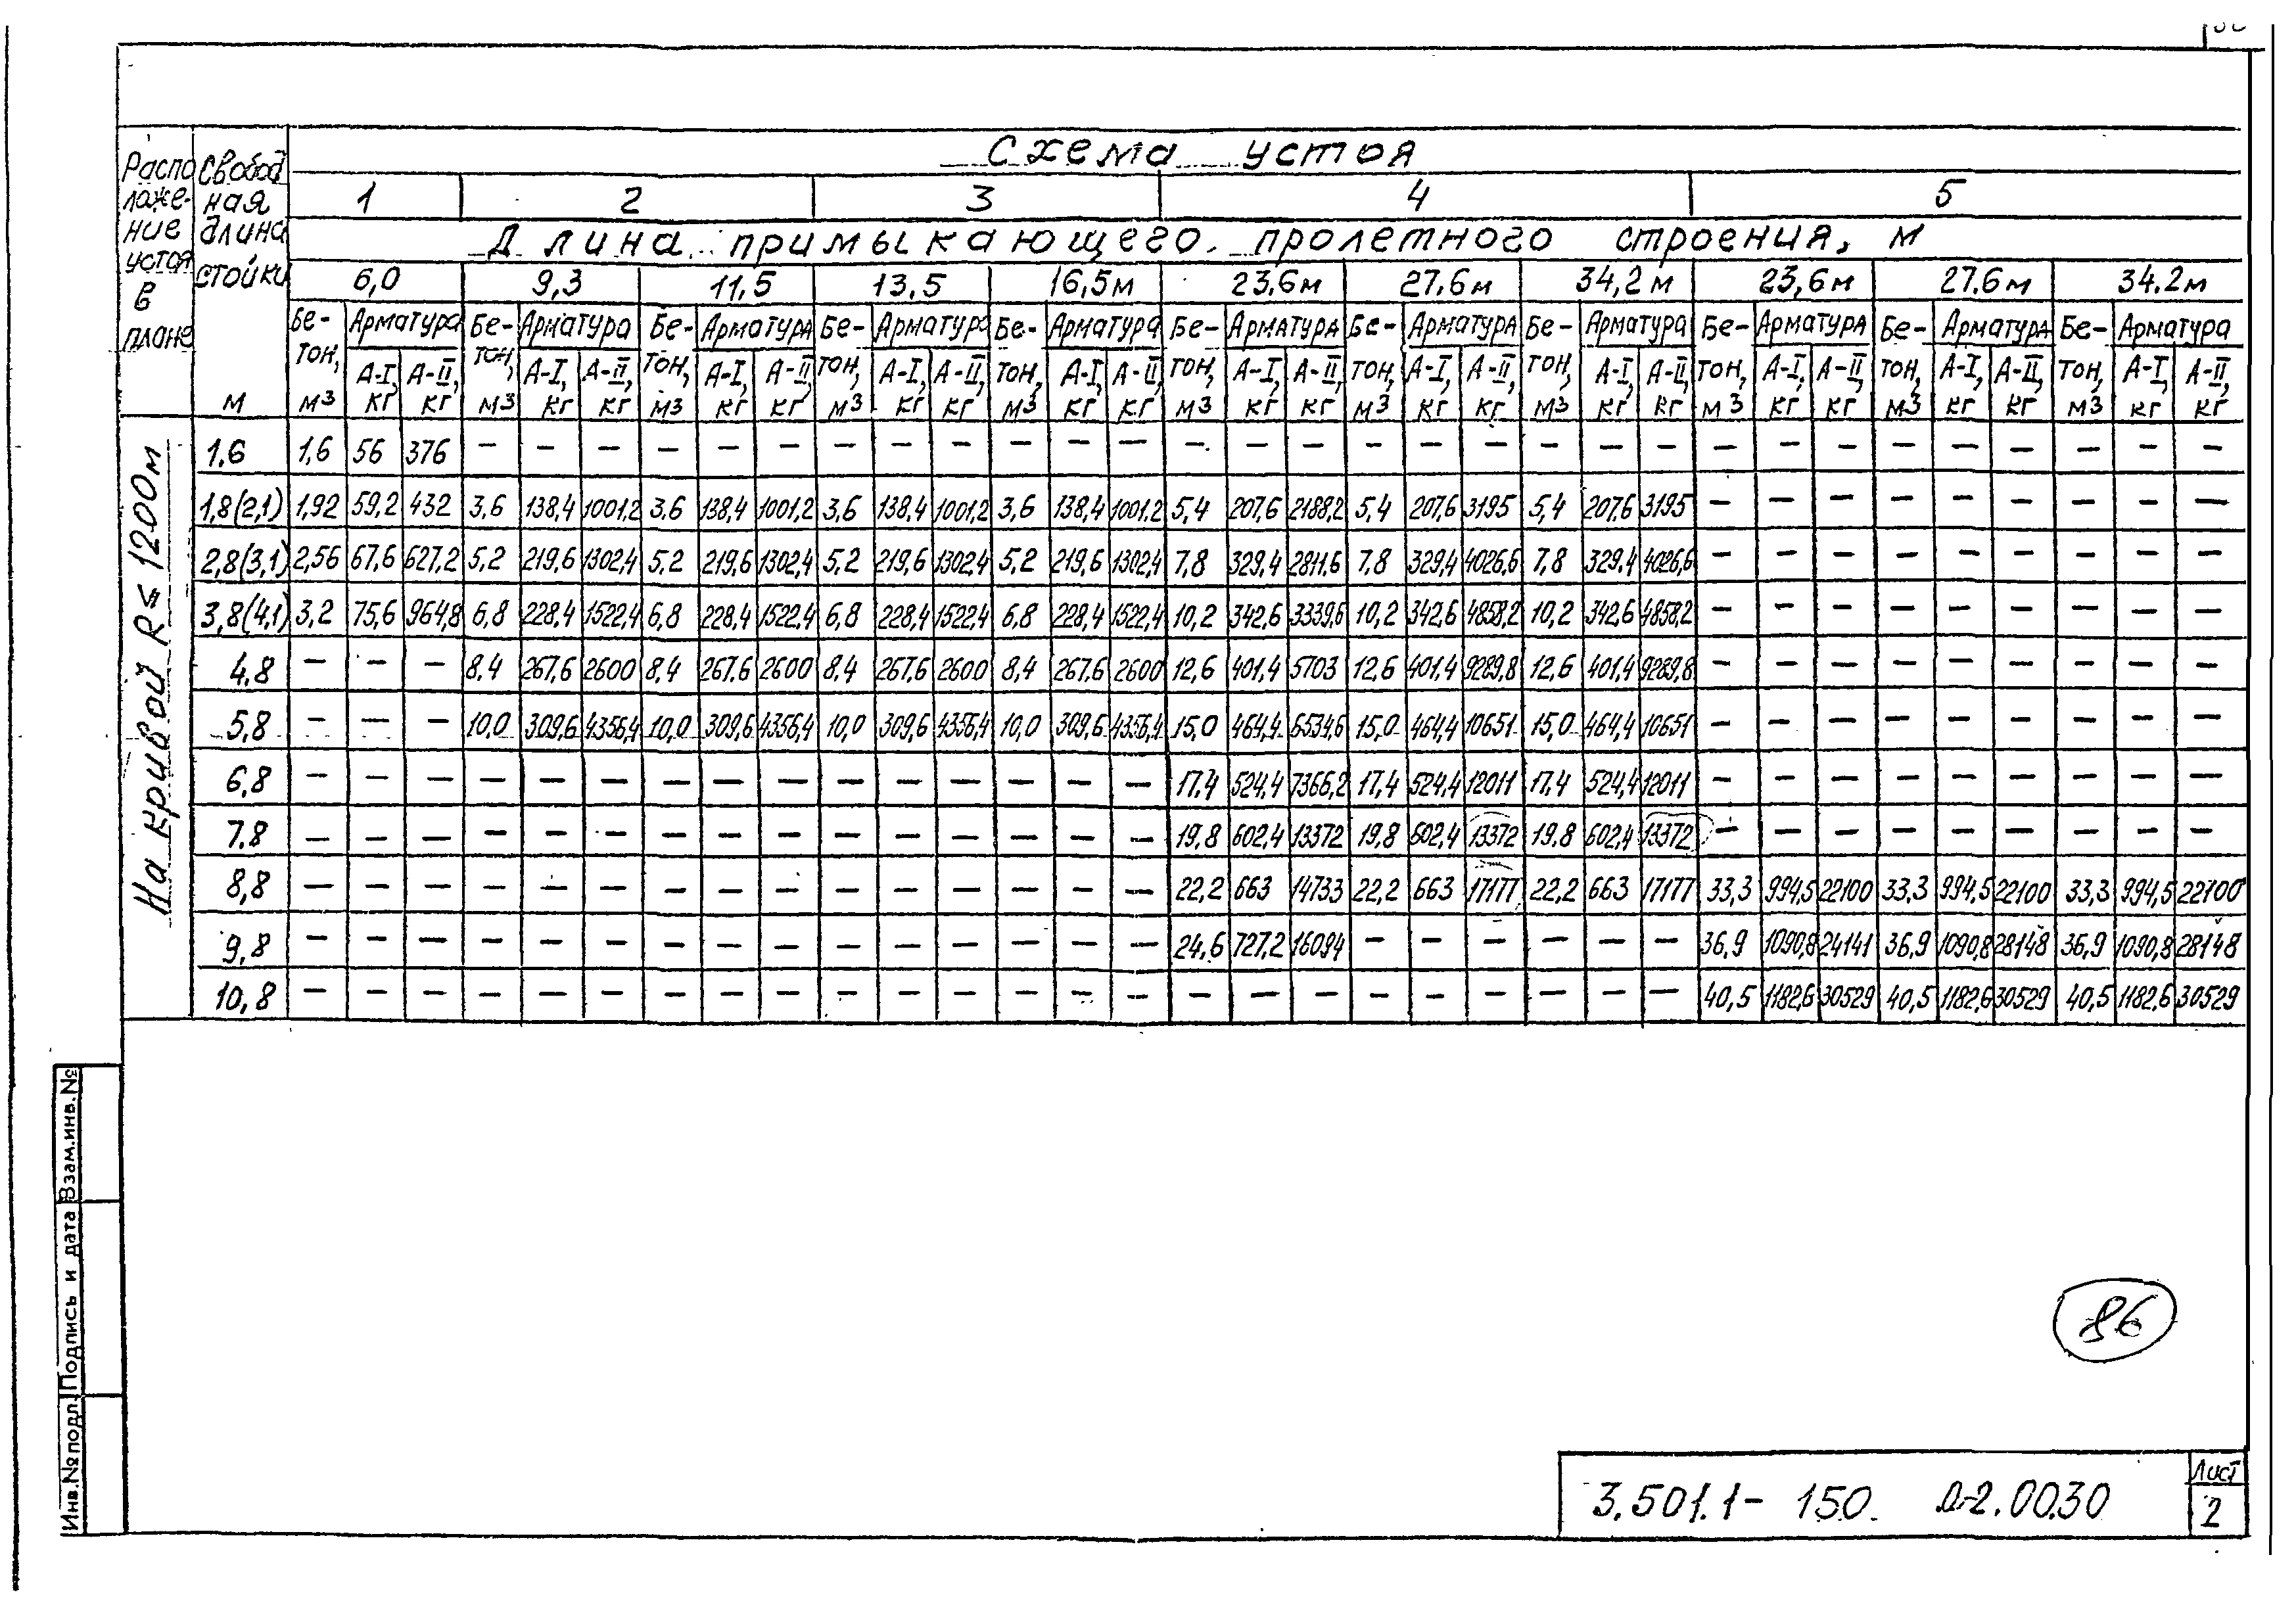 Схема устоя
Распо Свобод
ложе- ная
ние длина
устоя стойки
в
плане
м
1 2 3 4 5
Длина примыкающего пролетного строения, м
6,0 9,3 11,5 13,5 16,5м 23,6м 27,6м 34,2м 23,6м 27.6м 34.2м
Бе- Арматура Бе- Арматура Бе- Арматура Бе- Арматура Бе- Арматура Бе- Арматура Бе- Арматура Бе- Арматура Бе- Арматура Бе- Арматура Бе- Арматура
тон, А-I, А-II, тон, А-I, А-II, тон, А-I, А-II, тон, А-I, А-II, тон, А-I, А-II, тон, А-I, А-II, тон, А-I, А-II, тон, А-I, А-II, тон, А-I, А-II, тон, А-I, А-II, тон, А-I, А-II,
м3 кг кг м3 кг кг м3 кг кг м3 кг кг м3 кг кг м3 кг кг м3 кг кг м3 кг кг м3 кг кг м3 кг кг м3 кг кг
На кривой R≤1200м
1.6 1,6 56 376 – – – – – – – – – – – – – – – – – – – – – – – – – – – – – –
1,8(2,1) 1,92 59,2 432 3,6 138,4 1001,2 3.6 138,4 1001,2 3,6 138,4 1001,2 3,6 138,4 1001,2 5,4 207,6 2188,2 5,4 207,6 3195 5,4 207,6 3195 – – – – – – – – –
2,8(3,1) 2,56 67,6 627,2 5,2 219,6 1302,4 5,2 219,6 1302,4 5,2 219,6 1302,4 5,2 219,6 1302,4 7,8 329,4 2811.6 7,8 329,4 4026,6 7,8 329,4 4026,6 – – – – – – – – –
3,8(4,1) 3,2 75,6 964,8 6,8 228,4 1522,4 6,8 228,4 1522,4 6,8 228,4 1522,4 6,8 228,4 1522,4 10,2 342,6 3339,6 10,2 342,6 4858,2 10,2 342,6 4858,2 – – – – – – – – –
4.8 – – – 8,4 267,6 2600 8,4 267.6 2600 8,4 267.6 2600 8,4 267,6 2600 12,6 401,4 5703 12,6 401,4 9289,8 12,6 401,4 9289,8 – – – – – – – – –
5,8 – – – 10,0 309,6 4356,4 10,0 309,6 4356,4 10,0 309,6 4356,4 10,0 309,6 4356,4 15,0 464,4 6534,6 15,0 464,4 10651 15,0 464,4 10651 – – – – – – – – –
6,8 – – – – – – – – – – – – – – – 17.4 524,4 7366,2 17,4 524,4 12011 17,4 524,4 12011 – – – – – – – – –
7.8 – – – – – – – – – – – – – – – 19,8 602,4 13372 19,8 602,4 13372 19,8 602,4 13372 – – – – – – – – –
8,8 – – – – – – – – – – – – – – – 22,2 663 14733 22,2 663 17177 22,2 663 17177 33,3 994,5 22100 33,3 994,5 22100 33,3 994,5 22100
9,8 – – – – – – – – – – – – – – – 24,6 727,2 16094 – – – – – – 36,9 1090,8 24141 36,9 1090,8 28148 36,9 1090,8 28148
10,8 – – – – – – – – – – – – – – – – – – – – – – – – 40,5 1182,6 30529 40,5 1182,6 30529 40,5 1182,6 30529
Взам.инв.№
Подпись и дата
Инв.№подл.
86
3.501.1-150. Д-2.0030
Лист
2